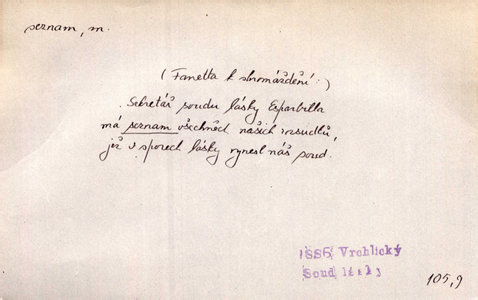 seznam, m.
(Fanetta k shromáždění:)
Sekretář soudu lásky Esparbella
má seznam všechněch našich rozsudků,
jež v sporech lásky vynesl náš soud.
1886 Vrchlický
Soud lásky
105,9